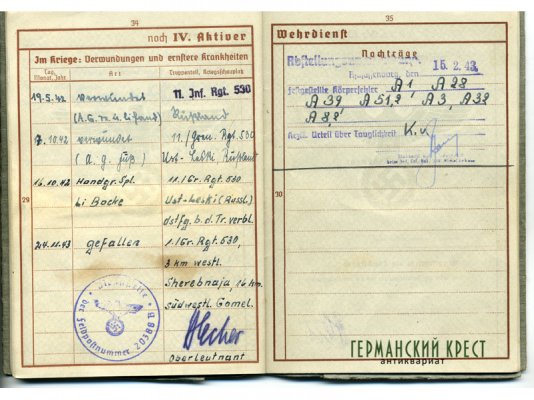 34
noch IV. Aktiver
Im Kriege: Verwundungen und ernstere Krankheiten
Tag, Monat, Jahr
Art
Truppenteil, Kriegsschauplatz
19.5.42 verwundet 11. Inf. Rgt. 530
(A.G. Rußland
7.10.42 verwundet 11./Gren. Rgt. 530
(A.G. Fuß) Rußland
16.10.42 Handgr. Spl. 11./Gr. Rgt. 530
29
li Backe Ust-Leski (Russl.)
dstfg. b. d. Tr. verbl.
24.11.43 gefallen 1./Gr. Rgt. 530,
3 km westl.
Sherebnaja, 16 km
südwestl. Gomel.
Dienststelle
der Feldpostnummer 20388 B
Oberleutnant
35
Wehrdienst
Nachträge
15.2.43
festgestellte Körperfehler A 1, A 28
A 39, A 51,2 A 3, A 32
A 8,8
Ärztl. Urteil über Tauglichkeit K.v.
30
ГЕРМАНСКИЙ КРЕСТ
антиквариат